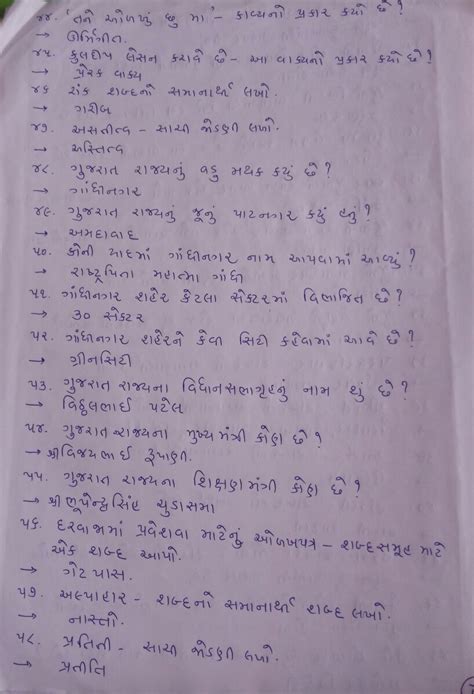 ૪૪. 'તને ઓળખું છું મા' - કાવ્યનો પ્રકાર કયો છે?
→ ઊર્મિગીત.
૪૫. કુલદીપ લેસન કરાવે છે - આ વાક્યનો પ્રકાર કયો છે?
→ પ્રેરક વાક્ય
૪૬ રાંક શબ્દનો સમાનાર્થી લખો.
→ ગરીબ
૪૭. અસતીત્વ - સાચી જોડણી લખો.
→ અસ્તિત્વ
૪૮. ગુજરાત રાજ્યનું વડુ મથક કયું છે?
→ ગાંધીનગર
૪૯. ગુજરાત રાજ્યનું જૂનું પાટનગર કયું હતું?
→ અમદાવાદ
૫૦. કોની યાદમાં ગાંધીનગર નામ આપવામાં આવ્યું?
→ રાષ્ટ્રપિતા મહાત્મા ગાંધી
૫૧. ગાંધીનગર શહેર કેટલા સેક્ટરમાં વિભાજિત છે?
→ ૩૦ સેક્ટર
૫૨. ગાંધીનગર શહેરને કેવી સિટી કહેવામાં આવે છે?
→ ગ્રીનસિટી
૫૩. ગુજરાત રાજ્યના વિધાનસભાગૃહનું નામ શું છે?
→ વિઠ્ઠલભાઈ પટેલ
૫૪. ગુજરાત રાજ્યના મુખ્યમંત્રી કોણ છે?
→ શ્રી વિજયભાઈ રૂપાણી.
૫૫. ગુજરાત રાજ્યના શિક્ષણમંત્રી કોણ છે?
→ શ્રી ભૂપેન્દ્રસિંહ ચુડાસમા
૫૬. દરવાજામાં પ્રવેશવા માટેનું ઓળખપત્ર - શબ્દસમૂહ માટે
એક શબ્દ આપો.
→ ગેટ પાસ.
૫૭. અલ્પાહાર - શબ્દનો સમાનાર્થી શબ્દ લખો.
→ નાસ્તો.
૫૮. પ્રતિતી - સાચી જોડણી લખો.
→ પ્રતીતિ